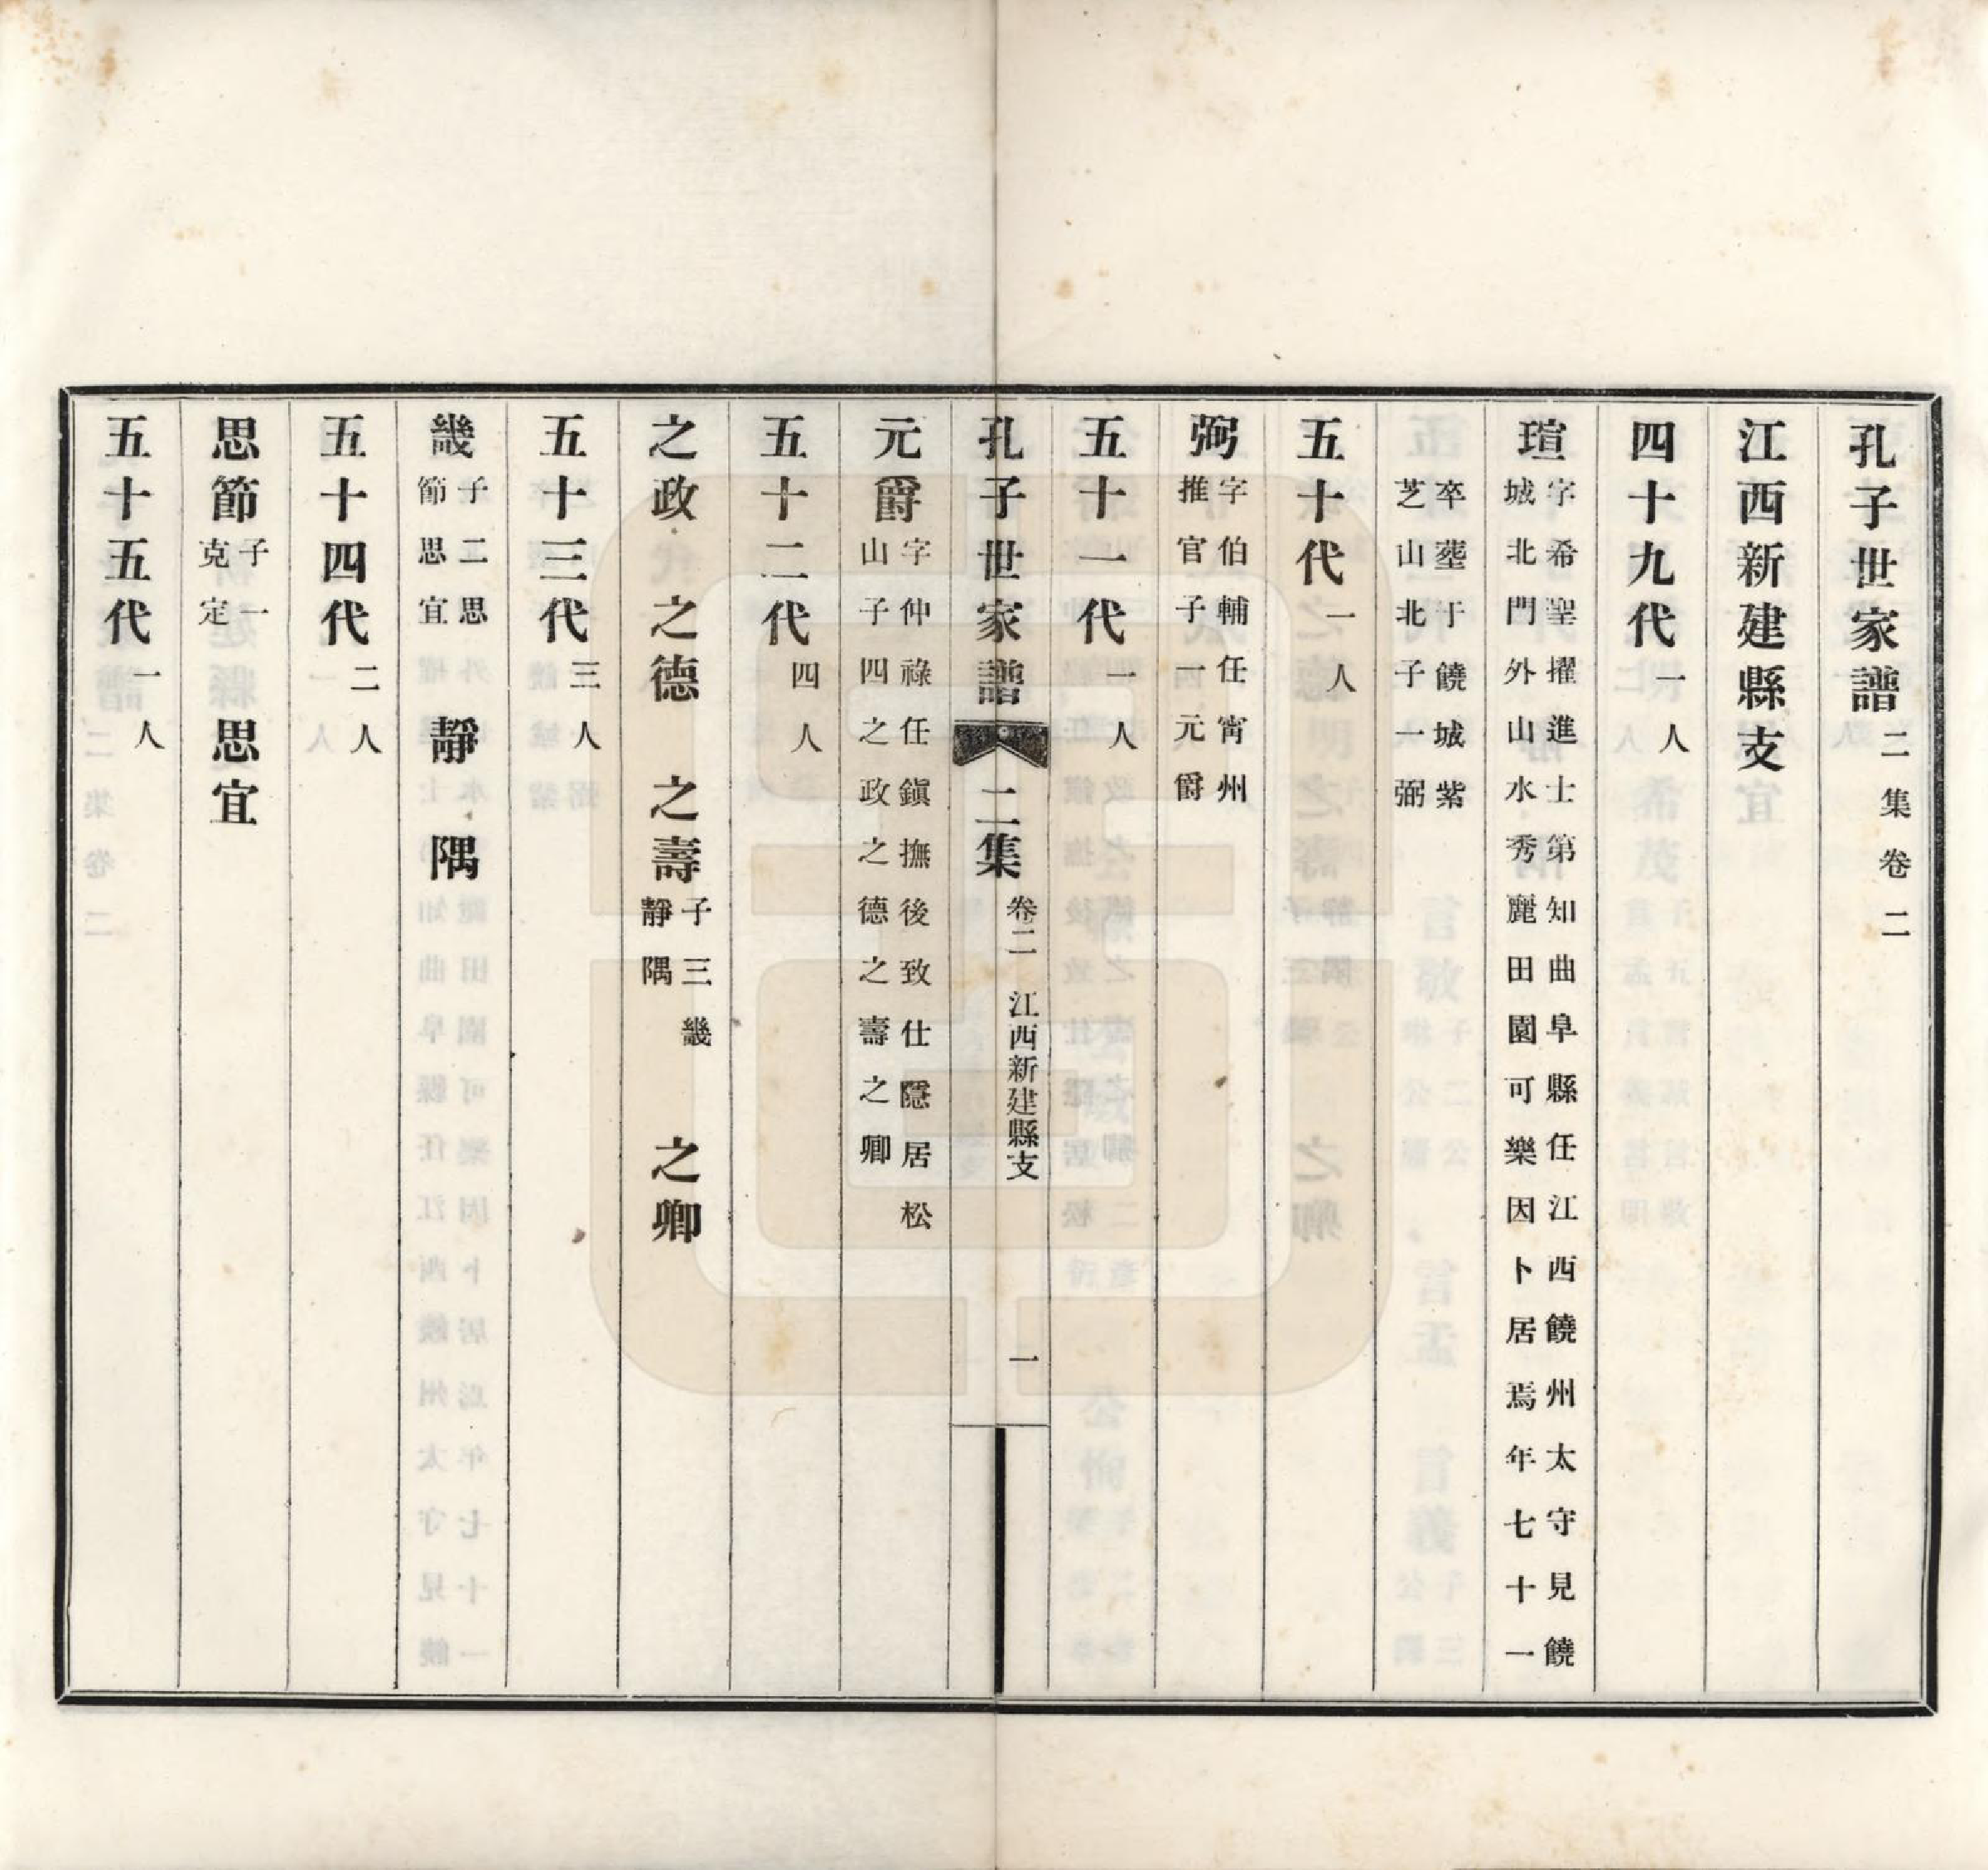 孔子世家譜二集卷二
江西新建縣支
四十九代一人
瑄字希聖擢進士第知曲阜縣任江西饒州太守見饒
城北門外山水秀麗田園可樂因卜居焉年七十一
卒塟于饒城紫
芝山北子一弼
五十代一人
弼字伯輔任甯州
推官子一元爵
五十一代一人
孔子世家譜 二集 卷二 江西新建縣支 一
元爵字仲祿任鎭撫後致仕隱居松
山子四之政之德之壽之卿
五十二代四人
之政 之德 之壽子三畿
靜隅 之卿
五十三代三人
畿子二思
節思宜 靜 隅
五十四代二人
思節子一
克定 思宜
五十五代一人